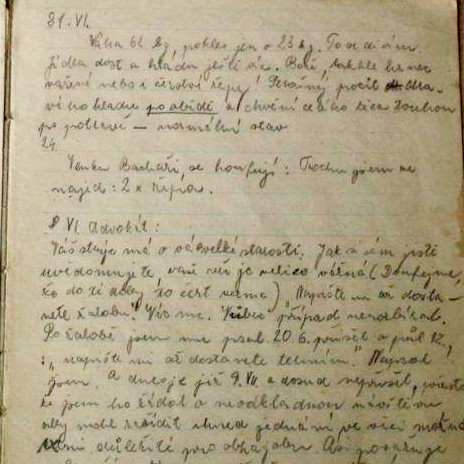 21. VI.
Váha 61 kg, pokles jen o 23 kg. To se
Jídla dost a hladu ještě víc. Bože takhle hrnec
vaření nebo i čerstvé řepy! Strašný pocit dra-
vého hladu po obědě a chvění celého těla touhou
po potravě — normální stav
24.
Venku Bachaři, se houfují: Trochu jsem se
najed: 2 x řepa.
8 VI. Advokát:
Váš stryc má o vás velké starosti. Jak si sám jistě
uvědomujete vaše věc je velice vážná (Doufejme,
že do té doby ho čert vezme) „Napište mi až dosta-
nete žalobu." Víc ne. případ
Po žalobě jsem mu psal. 20 6. přišel a půl 12,
: „napište mi až dostanete termín." Napsal
jsem. A dnes je již 9. VII. a dosud nepřišel, přesto
že jsem ho žádal o neodkladnou návštěvu
aby mohl zařídit ihned jednání ve věci
důležité pro obhajobu. Asi považuje